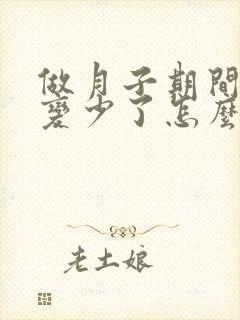 做月子期間
變少了怎麼
老土娘